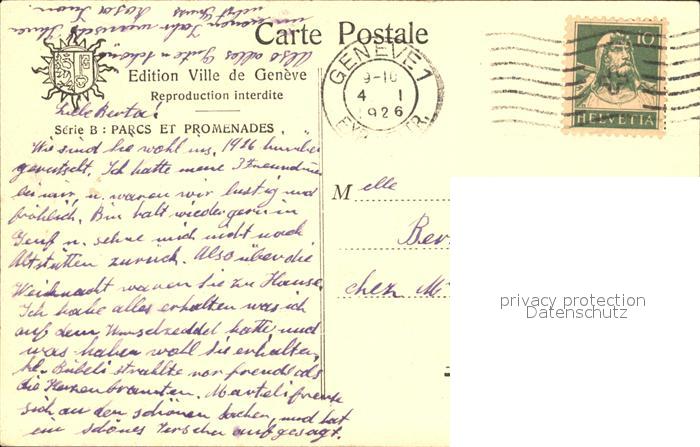 Carte Postale
Edition Ville de Genève
Reproduction interdite
Série B: PARCS ET PROMENADES
Liebe Berta!
Wie sind Sie wohl ins 1926 hinüber
gerutscht. Ich hatte meine 3 Freundinnen
bei mir, u. waren wir lustig und
fröhlich. Bin halt wieder gern in
Genf u. sehne mich nicht nach
Altstätten zurück. Also über die
Weihnacht waren Sie zu Hause.
Ich habe alles erhalten was ich
auf dem Wunschzeddel hatte und
was haben wohl Sie erhalten,
kl. Bübeli strahlte vor freude als
die Kerzen brannten. Marteli freute
sich an den schönen Sachen, und hat
ein schönes Verschen aufgesagt.
Also alles Gute u. schöne
im neuen Jahr wünscht Ihnen
nebst Gruss Rosa
GENEVE 1
9-10
4 I
1926
10
HELVETIA
Melle
Ber
chez M
privacy protection
Datenschutz